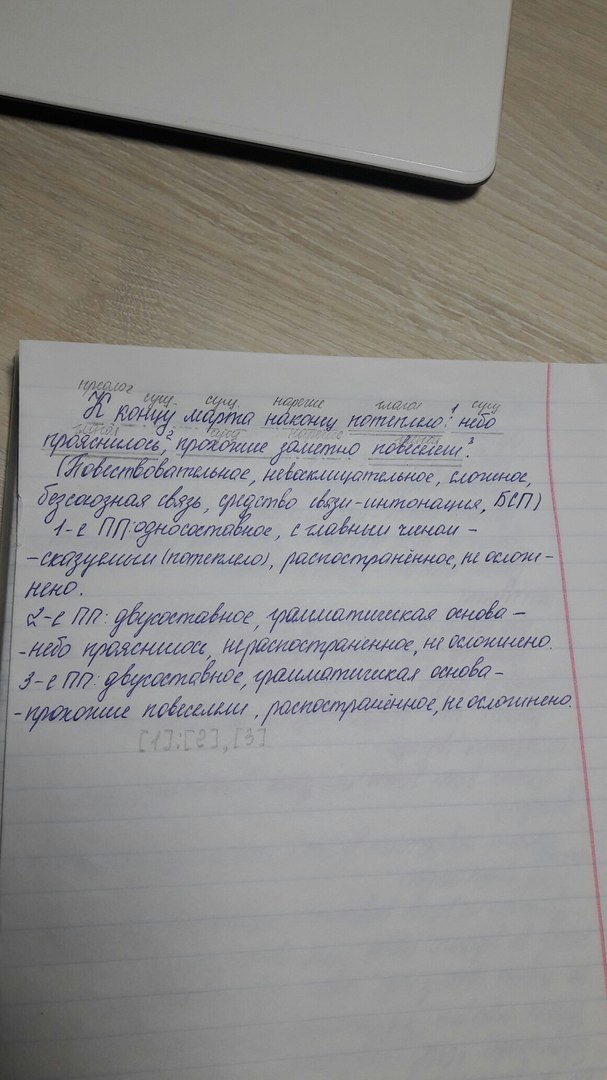 предлог сущ. сущ наречие глагол сущ
К концу марта наконец потеплело:¹ небо
глагол сущ наречие глагол
прояснилось,² прохожие заметно повеселели.³
(Повествовательное, невосклицательное, сложное,
безсоюзная связь, средство связи-интонация, БСП)
1-е ПП: односоставное, с главным членом -
-сказуемым (потеплело), распостранённое, не ослож-
нено.
2-е ПП: двусоставное, грамматическая основа -
-небо прояснилось, нераспостраненное, не осложнено.
3-е ПП: двусоставное, грамматическая основа -
-прохожие повеселели, распостранённое, не осложнено.
[1]:[2],[3]